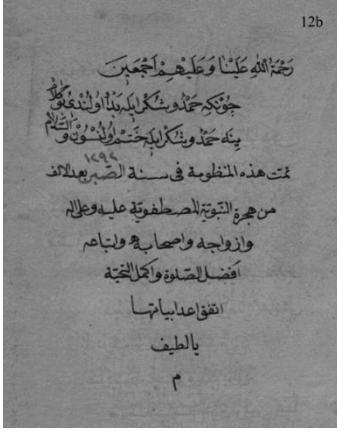 12b
رحمة الله علينا وعليهم اجمعين
چونكه حمد و شكر ايله بدأ اولندى
ينه حمد و شكر ايله ختم اولنسون والسلام
تمت هذه المنظومة فى سنة ١٢٩٢ الصبر بعد الالف
من هجرة النبوية المصطفوية عليه وعلى اله
وازواجه واصحابه واتباعه
افضل الصلوة واكمل التحية
اتفق اعداد ابياتها
يا لطيف
م